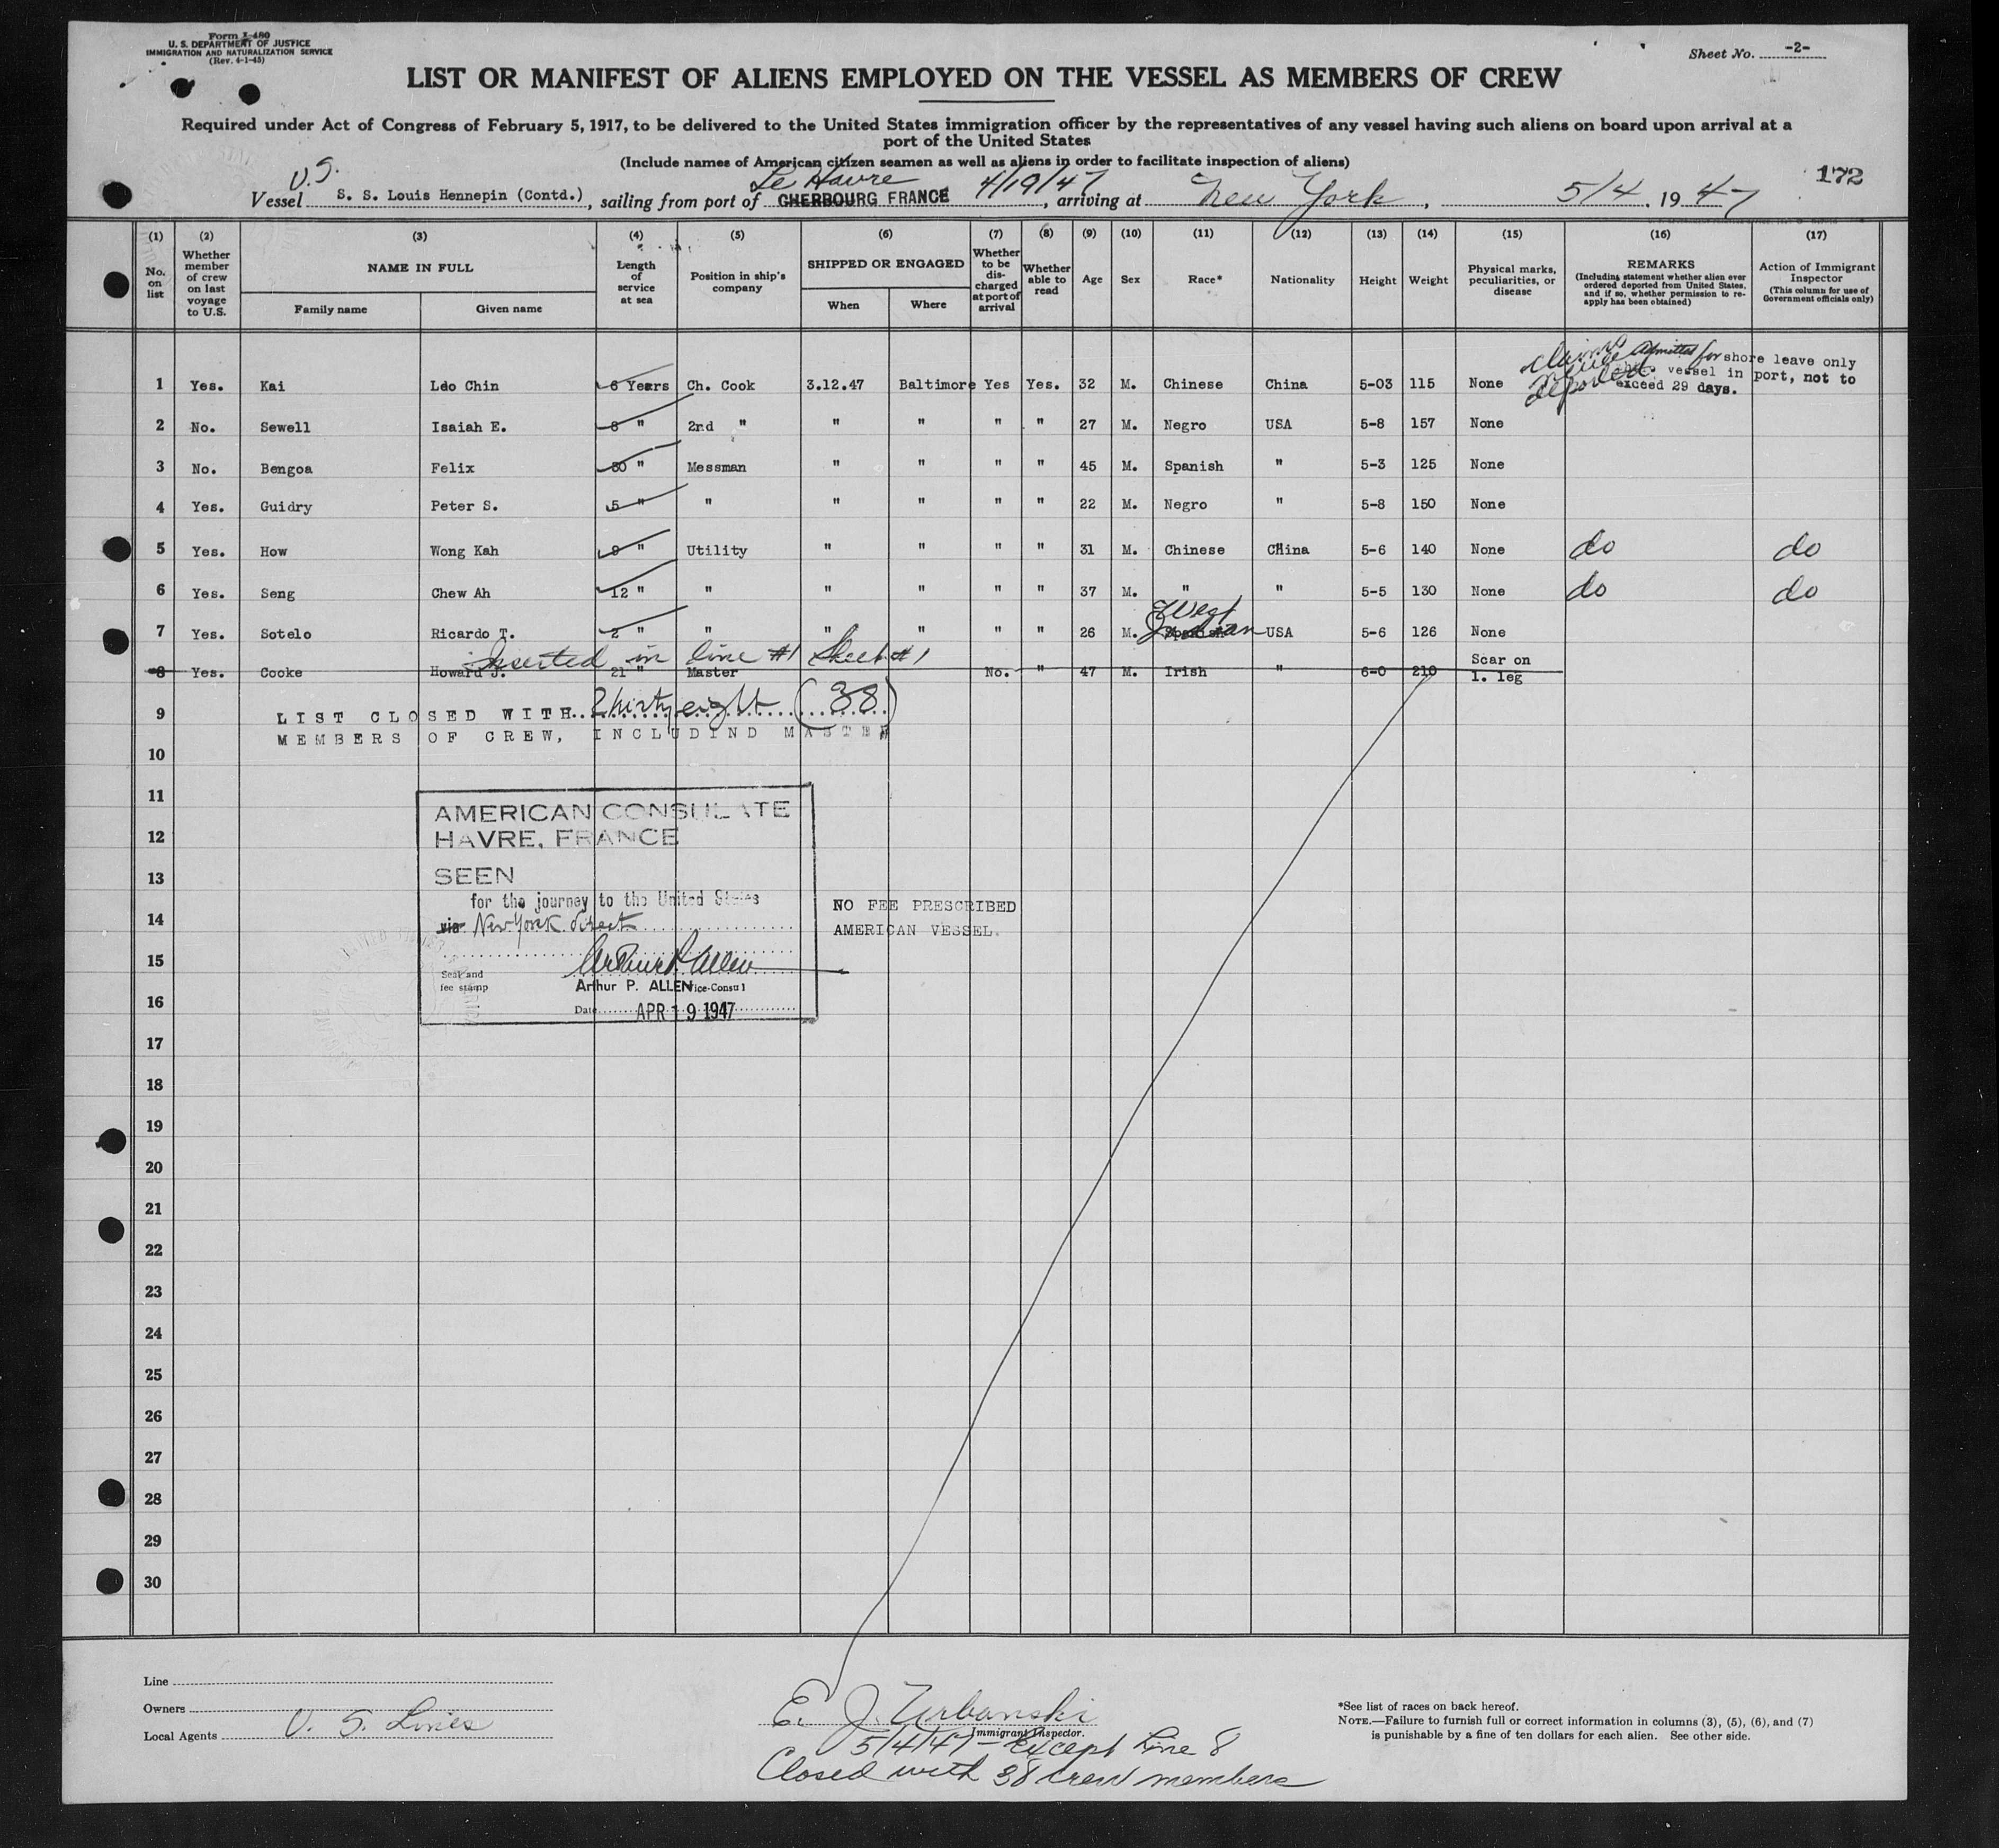 Form I-480
U. S. DEPARTMENT OF JUSTICE
IMMIGRATION AND NATURALIZATION SERVICE
(Rev. 4-1-45)
Sheet No. -2-
LIST OR MANIFEST OF ALIENS EMPLOYED ON THE VESSEL AS MEMBERS OF CREW
Required under Act of Congress of February 5, 1917, to be delivered to the United States immigration officer by the representatives of any vessel having such aliens on board upon arrival at a
port of the United States
(Include names of American citizen seamen as well as aliens in order to facilitate inspection of aliens)
172
U.S. Le Havre
Vessel S. S. Louis Hennepin (Contd.), sailing from port of CHERBOURG FRANCE 4/19/47, arriving at New York, 5/4, 1947
(1) (2) (3) (4) (5) (6) (7) (8) (9) (10) (11) (12) (13) (14) (15) (16) (17)
No. on list
Whether member of crew on last voyage to U.S.
NAME IN FULL
Family name Given name
Length of service at sea
Position in ship's company
SHIPPED OR ENGAGED
When Where
Whether to be discharged at port of arrival
Whether able to read
Age
Sex
Race*
Nationality
Height
Weight
Physical marks, peculiarities, or disease
REMARKS
(Including statement whether alien ever ordered deported from United States, and if so, whether permission to re-apply has been obtained)
Action of Immigrant Inspector
(This column for use of Government officials only)
claims never deported
Admitted for shore leave only
vessel in port, not to
exceed 29 days.
1 Yes. Kai Ldo Chin 6 Years Ch. Cook 3.12.47 Baltimore Yes Yes. 32 M. Chinese China 5-03 115 None
2 No. Sewell Isaiah E. 8 " 2nd " " " " " 27 M. Negro USA 5-8 157 None
3 No. Bengoa Felix 30 " Messman " " " " 45 M. Spanish " 5-3 125 None
4 Yes. Guidry Peter S. 5 " " " " " " 22 M. Negro " 5-8 150 None
5 Yes. How Wong Kah 9 " Utility " " " " 31 M. Chinese China 5-6 140 None do do
6 Yes. Seng Chew Ah 12 " " " " " " 37 M. " " 5-5 130 None do do
7 Yes. Sotelo Ricardo T. 2 " " " " " " 26 M. West Indian USA 5-6 126 None
Inserted in line #1 Sheet #1
8 Yes. Cooke Howard J. 21 " Master No. " 47 M. Irish " 6-0 210 Scar on l. leg
9 LIST CLOSED WITH Thirty eight (38)
MEMBERS OF CREW, INCLUDIND MASTER
10
11
AMERICAN CONSULATE
12
HAVRE, FRANCE
13
SEEN
for the journey to the United States
NO FEE PRESCRIBED
14
via New York direct
AMERICAN VESSEL.
15
Seal and
fee stamp
Arthur P. ALLEN Vice-Consul
16
Date APR 19 1947
17
18
19
20
21
22
23
24
25
26
27
28
29
30
Line
Owners
Local Agents U. S. Lines
E. J. Urbanski
Immigrant Inspector.
5/4/47 - Except Line 8
Closed with 38 crew members
*See list of races on back hereof.
NOTE.—Failure to furnish full or correct information in columns (3), (5), (6), and (7)
is punishable by a fine of ten dollars for each alien. See other side.